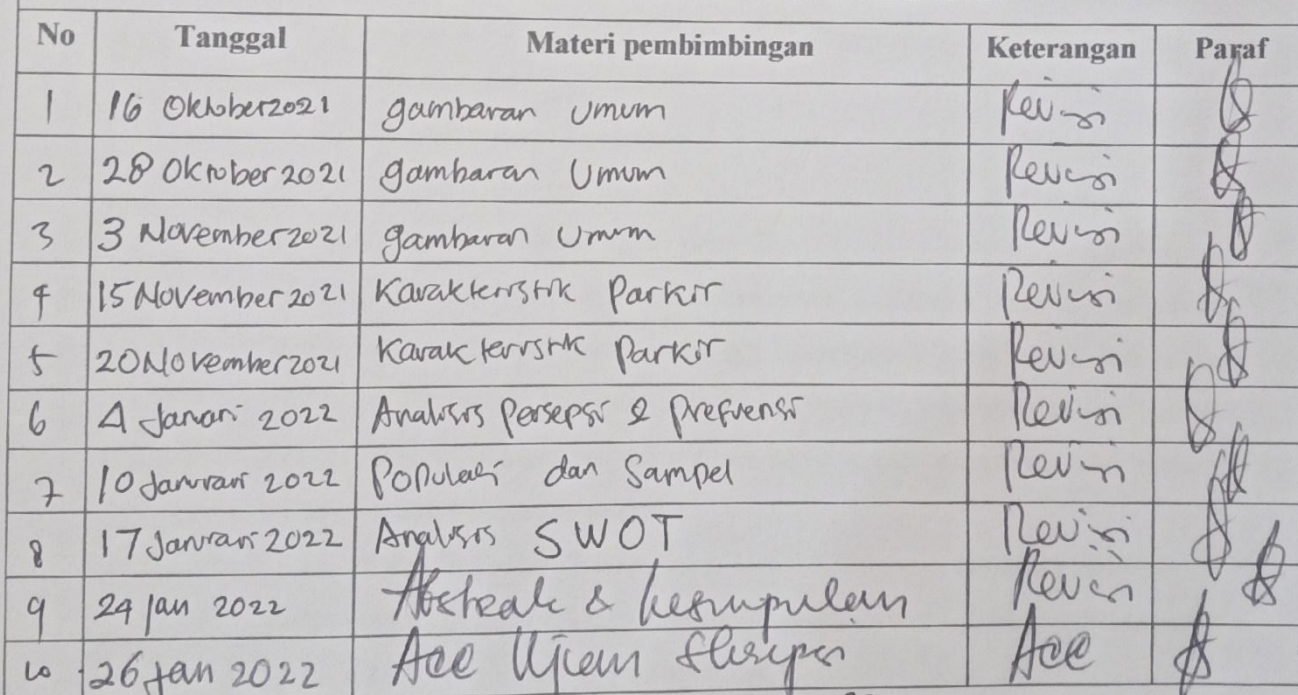 No Tanggal Materi pembimbingan Keterangan Paraf
1 16 Oktober 2021 gambaran Umum Revisi
2 28 Oktober 2021 gambaran Umum Revisi
3 3 November 2021 gambaran Umum Revisi
4 15 November 2021 Karakteristik Parkir Revisi
5 20 November 2021 Karakteristik Parkir Revisi
6 4 Janari 2022 Analisis Persepsi & Prefrensi Revisi
7 10 Januari 2022 Populasi dan Sampel Revisi
8 17 Januari 2022 Analisis SWOT Revisi
9 24 Jan 2022 Abstrak & kesimpulan Revisi
10 26 Jan 2022 Acc Ujian Skripsi Acc